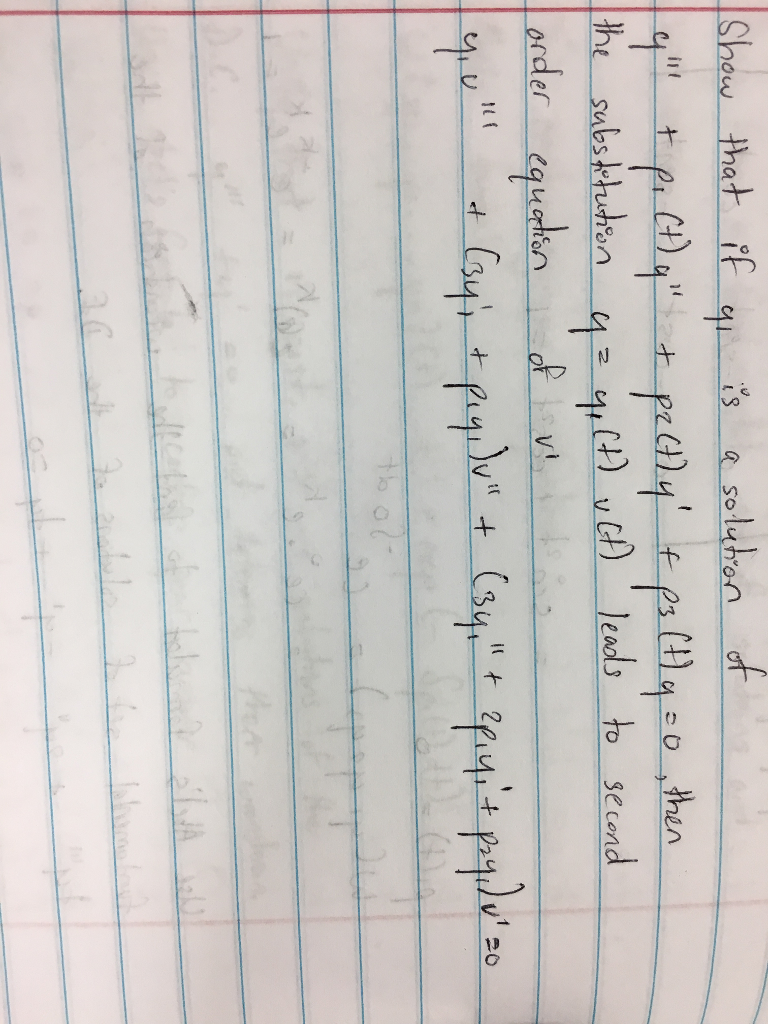 Show that if y₁ is a solution of
y''' + p₁(t)y'' + p₂(t)y' + p₃(t)y = 0, then
the substitution y = y₁(t) v(t) leads to second
order equation of v'
y₁v''' + (3y₁' + p₁y₁)v'' + (3y₁'' + 2p₁y₁' + p₂y₁)v' = 0